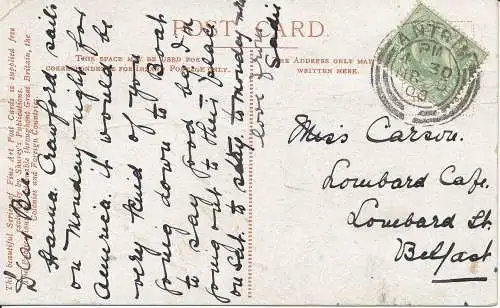 POST CARD
THIS SPACE MAY BE USED FOR
CORRESPONDENCE FOR INLAND POSTAGE ONLY.
THE ADDRESS ONLY MAY
WRITTEN HERE.
This beautiful Series of Fine Art Post Cards is supplied free
exclusively by Shurey's Publications.
throughout Great Britain, the
Colonies and Foreign Countries.
ANTRIM
PM
Dear
Hanna Crawford sails
on Monday night for
America it would be
very kind of you
going down to Boat
to say good bye. Im
going out to their place
on Sat. to stay to
love from
Sadie
Miss Carson.
Lombard Cafe.
Lombard St.
Belfast